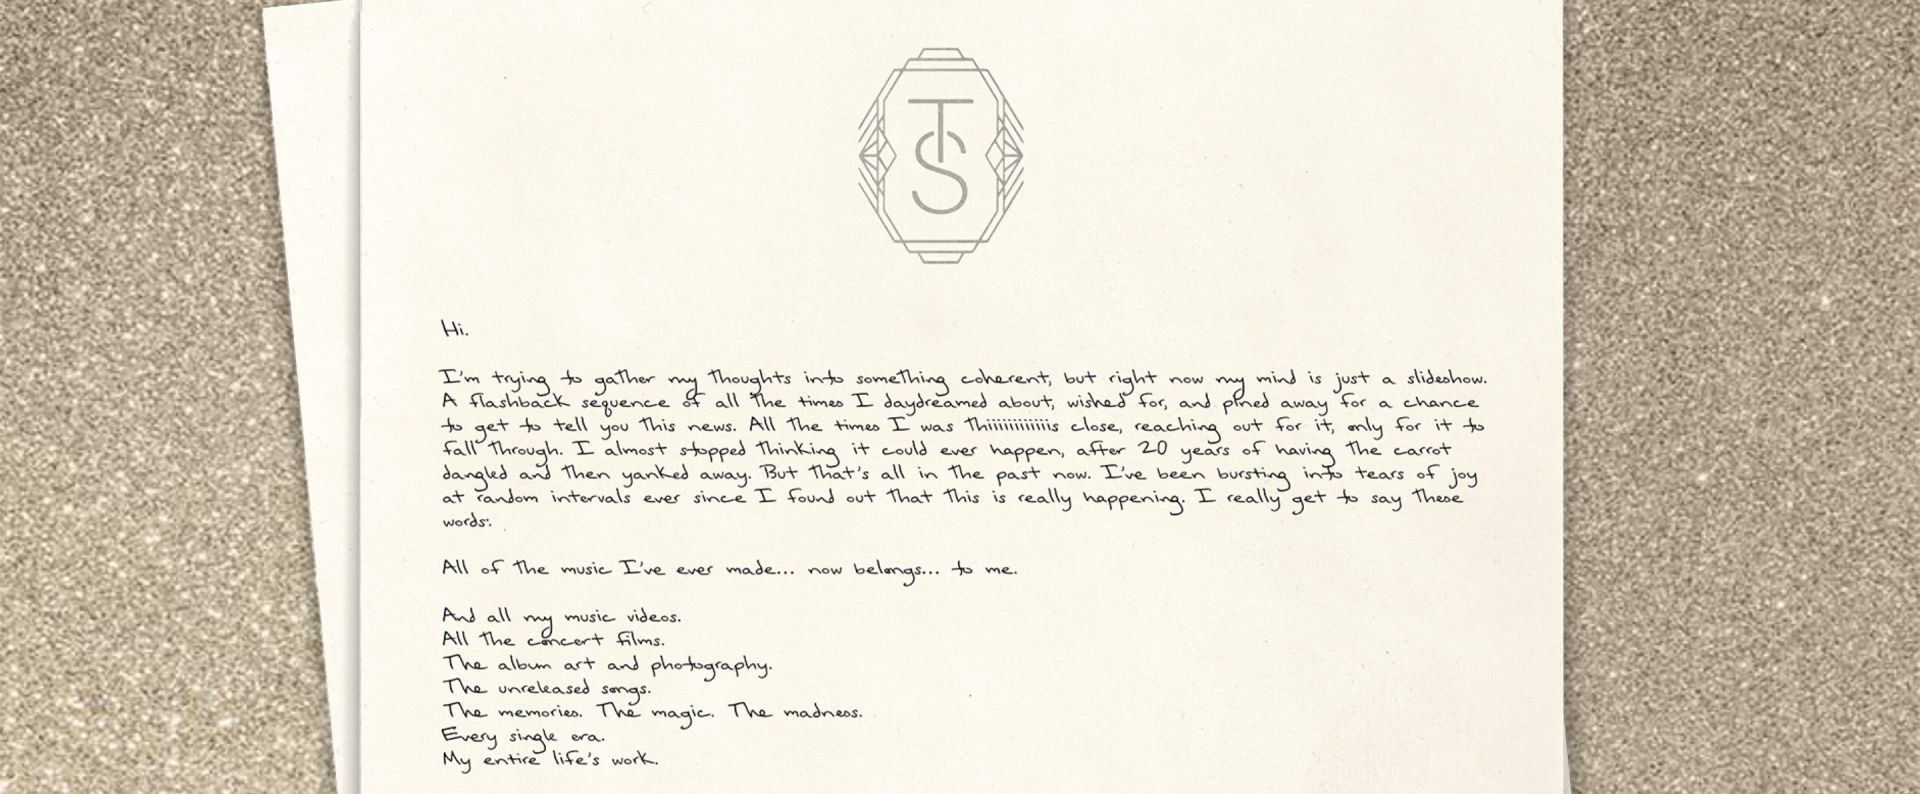 TS
Hi.
I'm trying to gather my thoughts into something coherent, but right now my mind is just a slideshow.
A flashback sequence of all the times I daydreamed about, wished for, and pined away for a chance
to get to tell you this news. All the times I was thiiiiiiiiiiiis close, reaching out for it, only for it to
fall through. I almost stopped thinking it could ever happen, after 20 years of having the carrot
dangled and then yanked away. But that's all in the past now. I've been bursting into tears of joy
at random intervals ever since I found out that this is really happening. I really get to say these
words:
All of the music I've ever made... now belongs... to me.
And all my music videos.
All the concert films.
The album art and photography.
The unreleased songs.
The memories. The magic. The madness.
Every single era.
My entire life's work.